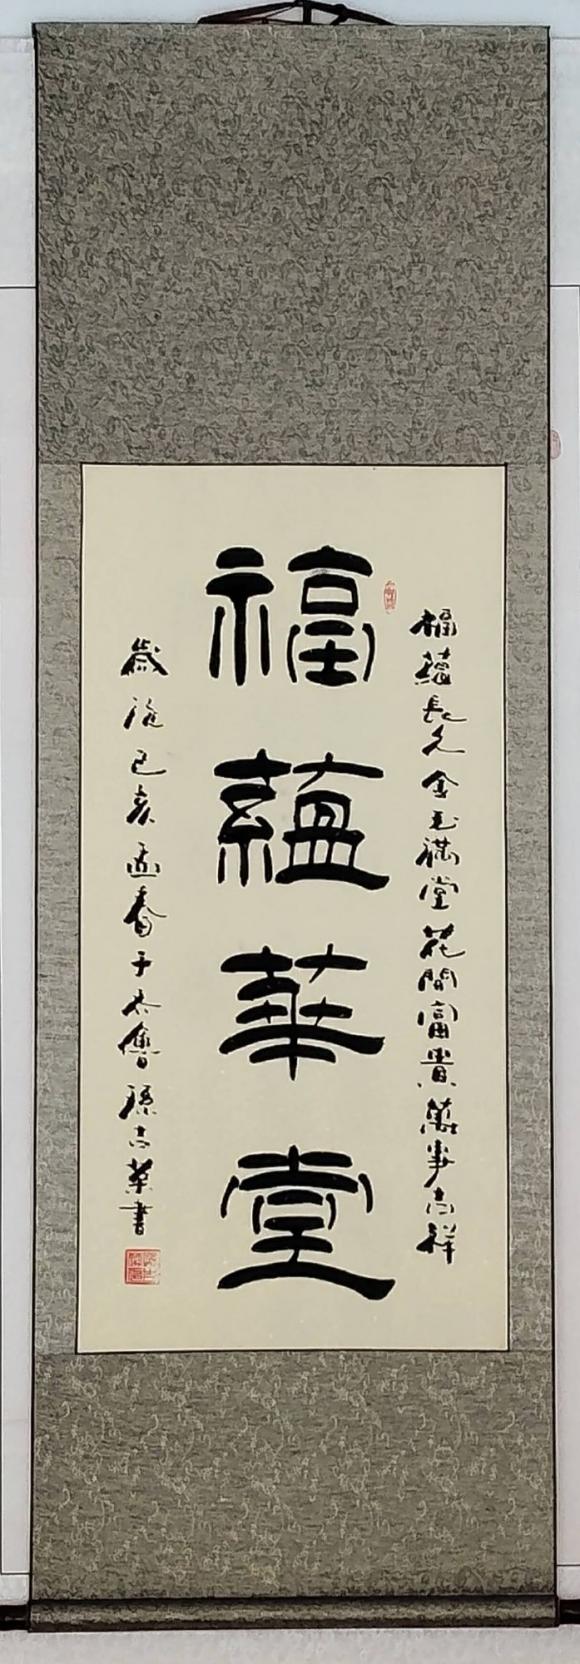 福蘊長久金玉滿堂花開富貴萬事吉祥
福蘊華堂
歲次己亥孟春于太倉孫吉榮書